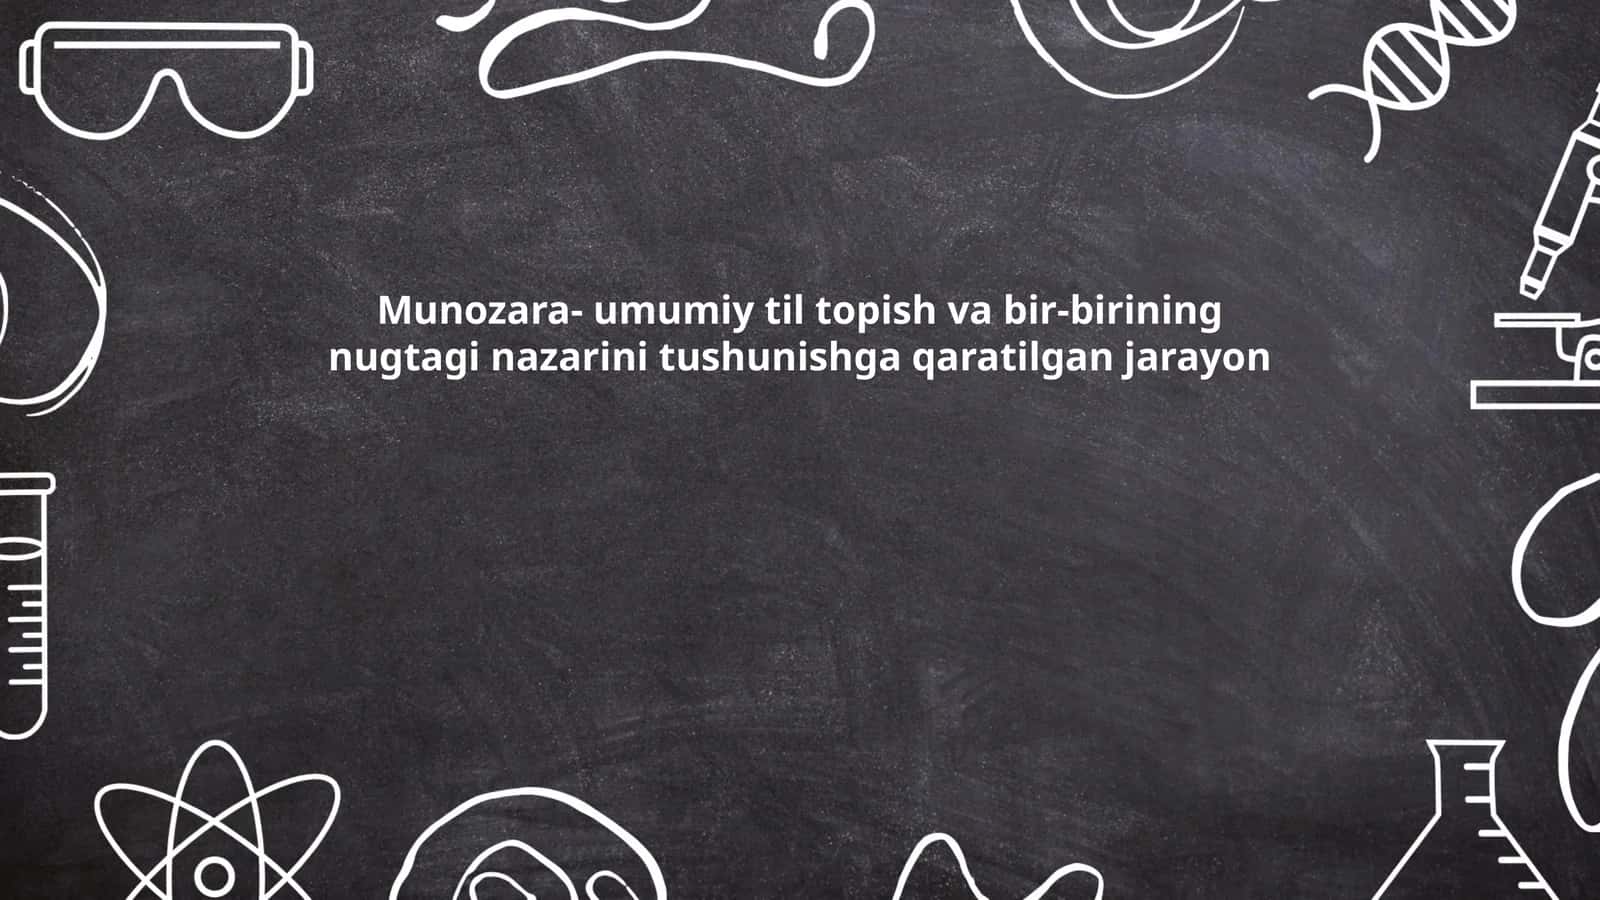 Munozara- umumiy til topish va bir-birining
nugtagi nazarini tushunishga qaratilgan jarayon